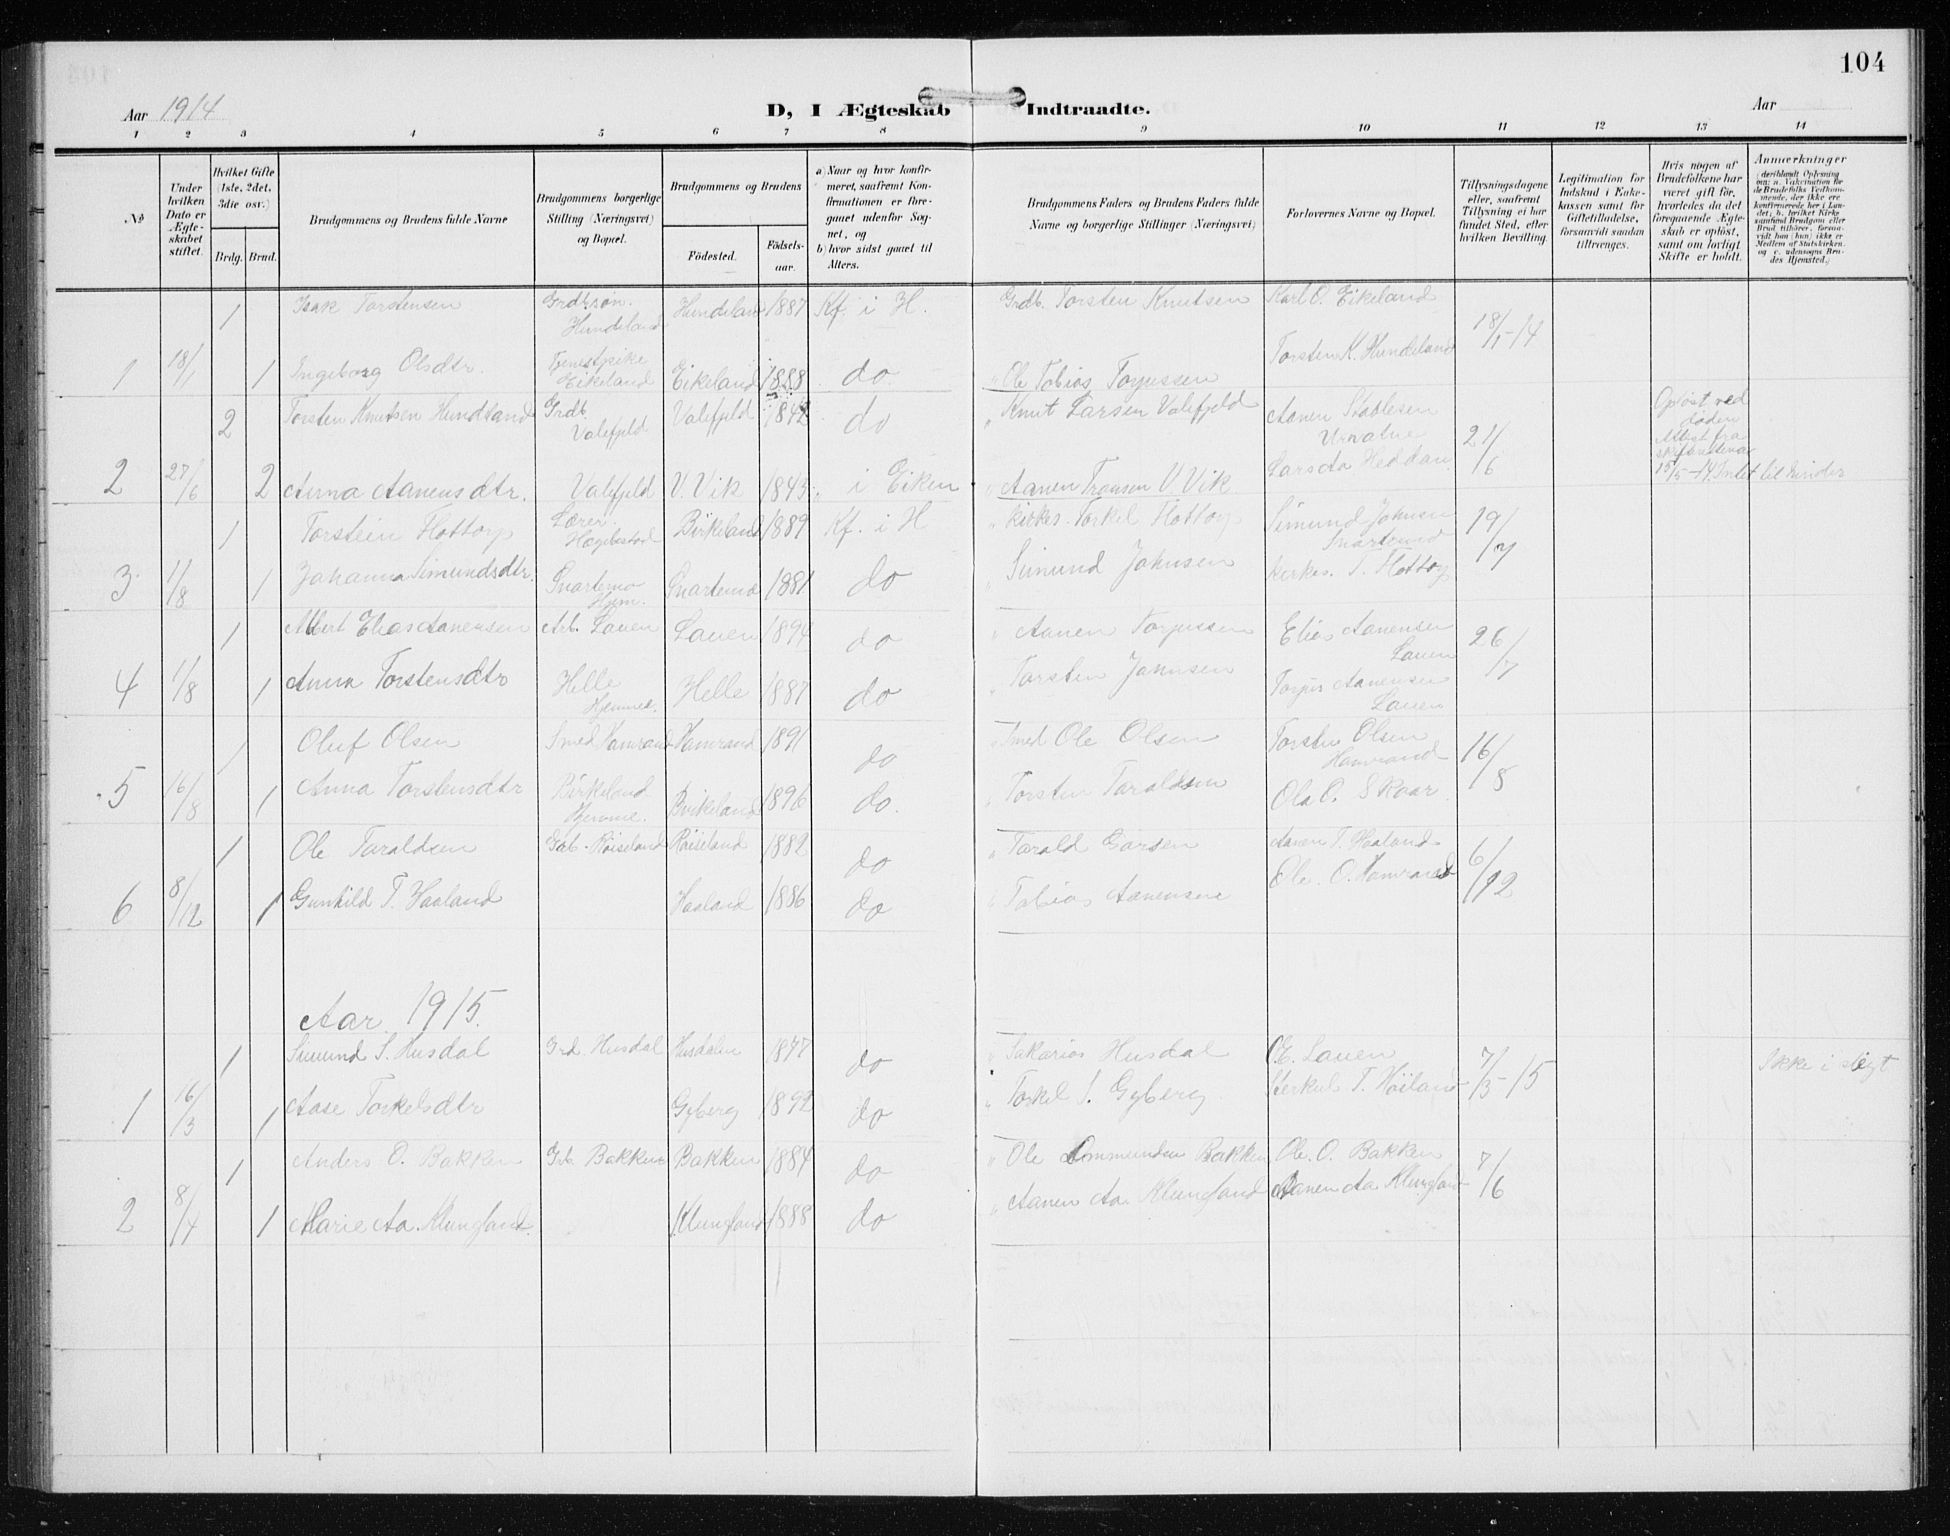 104
Aar 1914
D, I Ægteskab Indtraadte.
Aar
1 2 3 4 5 6 7 8 9 10 11 12 13 14
№
Under hvilken Dato er Ægteskabet stiftet.
Hvilket Gifte (1ste, 2det, 3die osv.)
Brdg. Brud.
Brudgommens og Brudens fulde Navne
Brudgommens borgerlige Stilling (Næringsvei) og Bopæl.
Brudgommens og Brudens
Fødested.
Fødselsaar.
a) Naar og hvor konfirmeret, saafremt Konfirmationen er foregaaet udenfor Sognet, og
b) hvor sidst gaaet til Alters.
Brudgommens Faders og Brudens Faders fulde Navne og borgerlige Stillinger (Næringsvei)
Forlovernes Navne og Bopæl.
Tillysningsdagene eller, saafremt Tillysning ei har fundet Sted, efter hvilken Bevilling.
Legitimation for Indskud i Enkekassen samt for Giftetilladelse, forsaavidt saadan tiltrænges.
Hvis nogen af Brudefolkene har været gift før, hvorledes da det foregaaende Ægteskab er opløst, samt om lovligt Skifte er holdt.
Anmærkninger (deriblandt Oplysning om: a. Vakcination for de Brudefolks Vedkommende, der ikke ere konfirmerede her i Landet; b. hvilket Kirkesamfund Brudgom eller Brud tilhører, forsaavidt han (hun) ikke er Medlem af Statskirken, og c. udensogns Brudes Hjemsted.)
1 Isak Torstensen Grdbrsøn. Hundeland Hundeland 1887 Kf. i H. Grdb. Torsten Knutsen Karl O. Eikeland
1 18/1 1 Ingeborg Olsdtr. Tjenestpike Eikeland Eikeland 1888 do. " Ole Tobias Torjussen Torsten K. Hundeland 18/1-14
2 Torsten Knutsen Hundland Grdb. Valefjeld Valefjeld 1842 do " Knut Larsen Valefjeld Aanen Stablesen Urvatne Opløst ved døden
2 27/6 2 Anna Aanensdtr. Valefjeld V. Vik 1843 " i Eiken " Aanen Tronsen V. Vik Lars Aa Heddan 21/6 Attest fra skifteretten av 15/5-14. Intet til hinder
1 Torstein Hottorp Lærer. Hægebostad Birkeland 1889 Kf. i H " Kirkes. Torkel Hottorp Simund Johnsen Snartemo
3 1/8 1 Johanna Simundsdtr. Snartemo Hjem. Snartemo 1881 do " Simund Johnsen kirkes. T. Hottorp 19/7
1 Albert Elias Aanensen Arb. Lauen Lauen 1894 do " Aanen Torjussen Elias Aanensen Lauen
4 1/8 1 Anna Torstensdtr Helle Hjemme. Helle 1887 do " Torsten Johnsen Torjus Aanensen Lauen 26/7
1 Oluf Olsen Smed Hamrand Hamrand 1891 do Smed Ole Olsen Torsten Olsen Hamrand
5 16/8 1 Anna Torstensdtr Birkeland Hjemme. Birkeland 1896 do. " Torsten Taraldsen Ola O. Skaar 16/8
1 Ole Taraldsen Gab. Røiseland Røiseland 1882 do " Tarald Garsen Aanen T. Haaland
6 8/12 1 Gunhild T. Haaland Haaland 1886 do " Tobias Aanensen Ole O. Hamrand 6/12
Aar 1915.
1 Simund S. Husdal Grd. Husdal Husdalen 1877 do " Sakarias Husdal O. E. Lauen Ikke i slegt
1 16/3 1 Aase Torkelsdtr Gyberg 1892 do " Torkel S. Gyberg Sterkul T. Høiland 7/3-15
1 Anders O. Bakken Grb. Bakken Bakken 1884 do " Ole Ommundsen Bakken Ole. O. Bakken
2 8/4 1 Marie Aa. Klungland. Klungland 1888 do " Aanen Aa. Klungland Aanen Aa Klungland 7/6